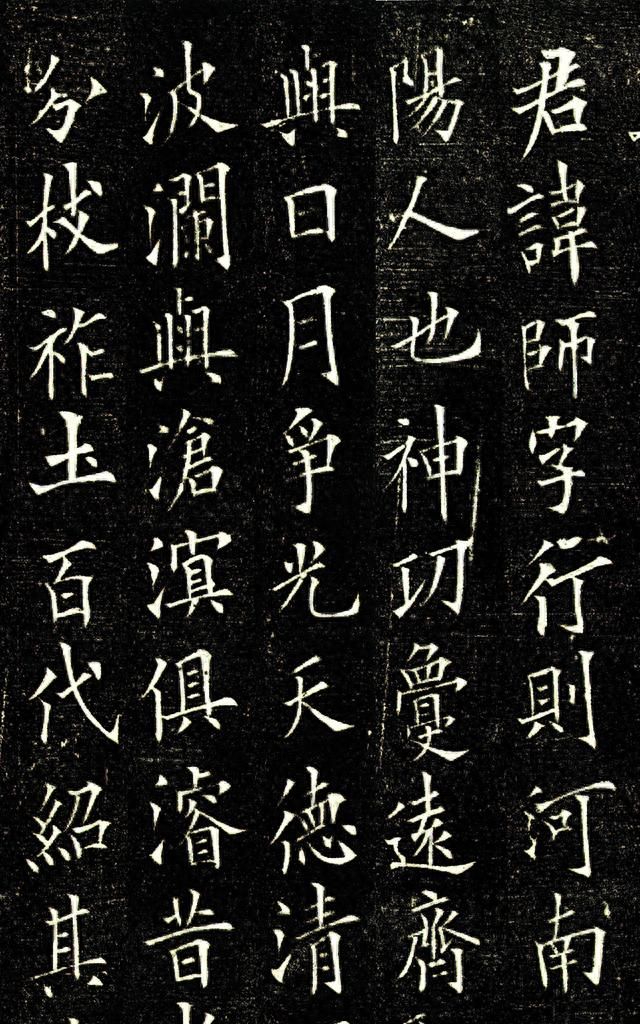 君諱師字行則河南
陽人也神功敻遠齊
與日月爭光天德清
波瀾與滄溟俱濬昔
分枝祚土百代紹其